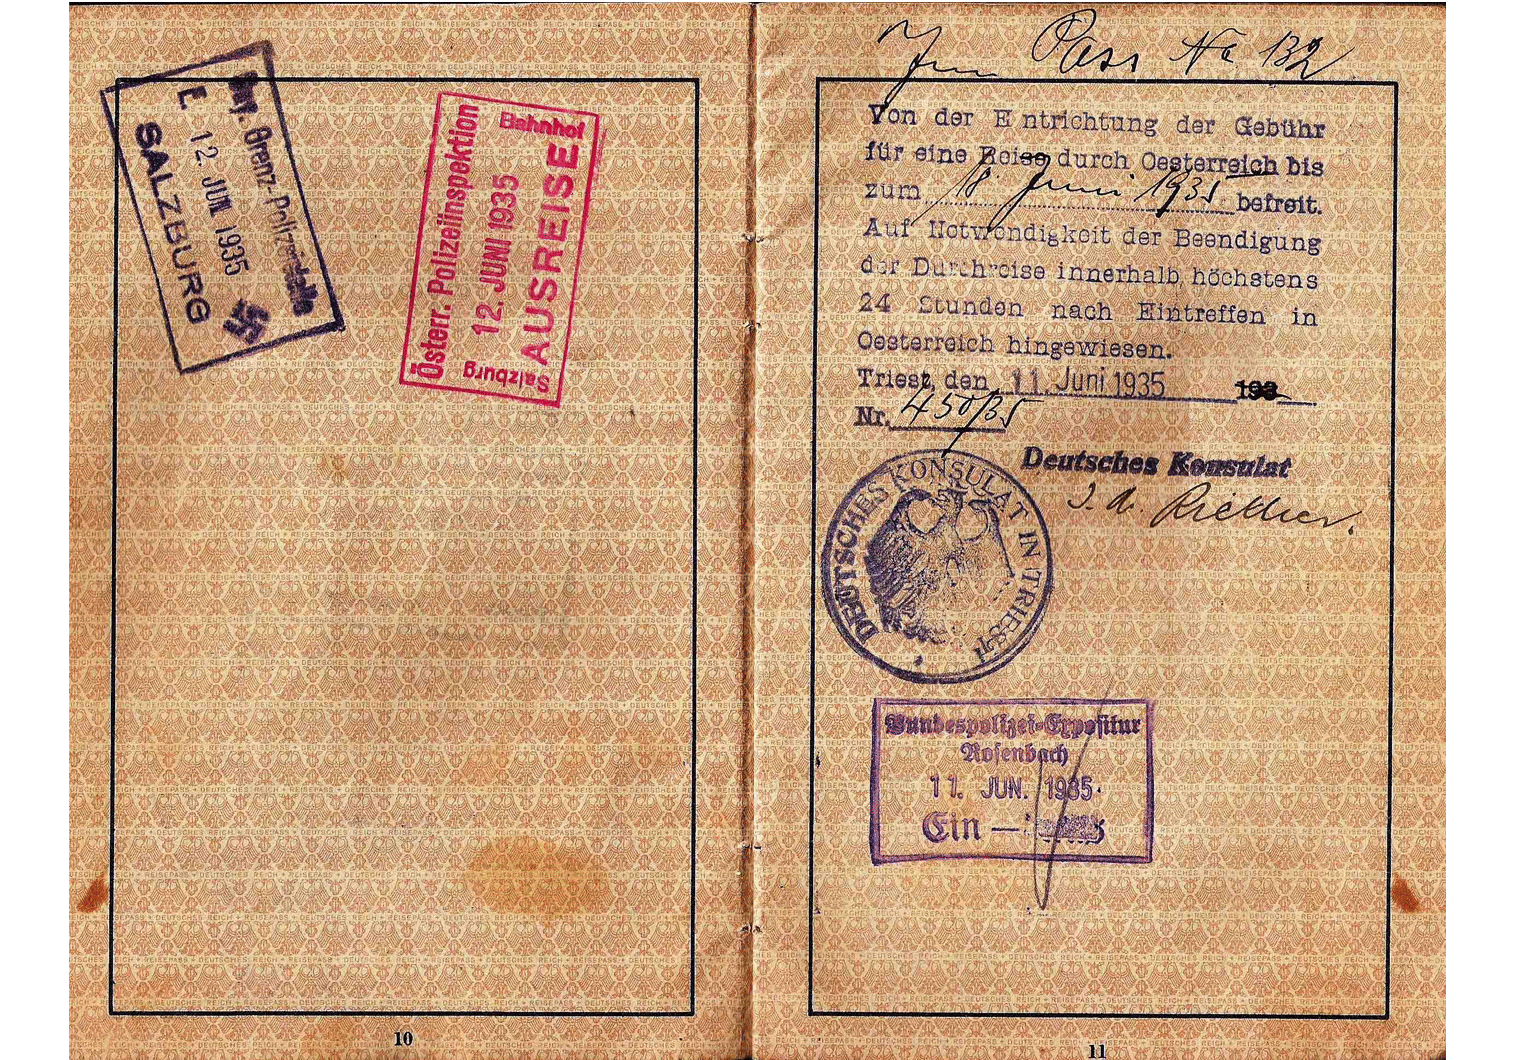 Bay. Grenz-Polizeistelle
E. 12. JUN 1935
SALZBURG
Österr. Polizeiinspektion
Bahnhof
12. JUNI 1935
AUSREISE
Salzburg
10
Zum Pass No 132
Von der Entrichtung der Gebühr
für eine Reise durch Oesterreich bis
zum 18. Juni 1935 befreit.
Auf Notwendigkeit der Beendigung
der Durchreise innerhalb höchstens
24 Stunden nach Eintreffen in
Oesterreich hingewiesen.
Triest, den 11. Juni 1935 193
Nr. 450/35
Deutsches Konsulat
DEUTSCHES KONSULAT IN TRIEST
Bundespolizei-Expositur
Rosenbach
11. JUN. 1935
Ein —
11